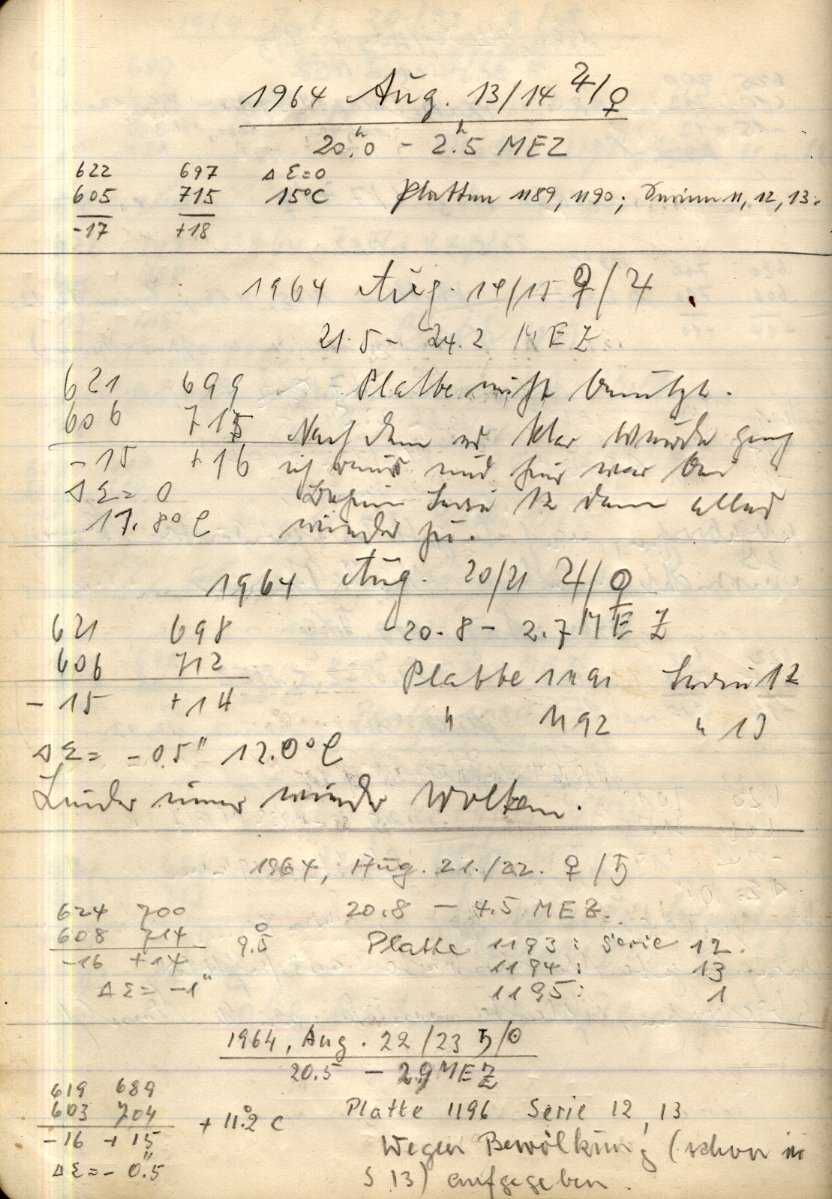 1964 Aug. 13/14 ♃/♀
20.ʰ0 – 2.ʰ5 MEZ
622 697 Δ Σ=0
605 715 15°C Platten 1189, 1190; Serien 11, 12, 13.
-17 +18
1964 Aug. 14/15 ♀/♃.
21.5 – 24.2 MEZ
621 699 Platte nicht benützt.
606 715 Nach dem es klar wurde ging
-15 +16 ich und war bei
Δ Σ= 0 Beginn Serie 12 dann alles
17.8°C wieder zu.
1964 Aug. 20/21 ♃/♀
621 698 20.8 – 2.7 MEZ
606 712 Platte 1191 Serie 12
-15 +14 " 1192 " 13
Δ Σ= -0.5" 12.0°C
Leider immer wieder Wolken.
1964, Aug. 21./22. ♀/♄
624 700 20.8 – 4.5 MEZ.
608 714 9.°5 Platte 1193: Serie 12.
-16 +14 1194: 13
Δ Σ= -1" 1195: 1
1964, Aug. 22/23 ♄/☉
20.5 – 2.9 MEZ
619 689
603 704 + 11.°2 C Platte 1196 Serie 12, 13
-16 + 15 Wegen Bewölkung (schon in
Δ Σ= - 0".5 S 13) aufgegeben.